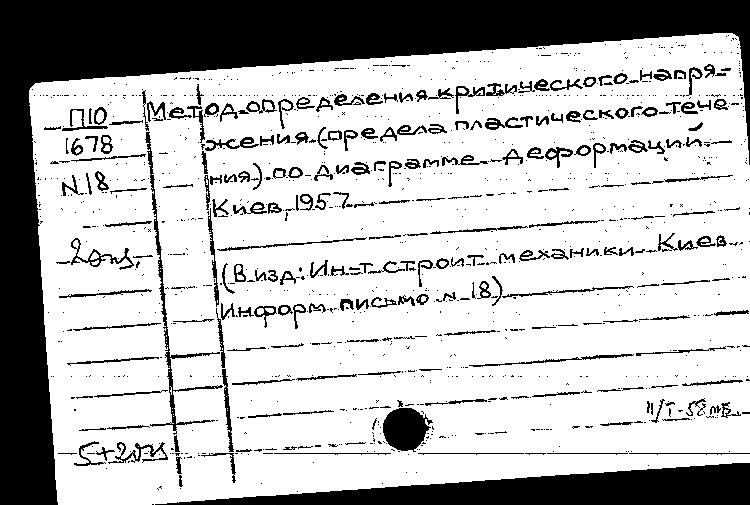 П10
1678
N.18
2экз.
Метод определения критического напря-
жения (предела пластического тече-
ния) по диаграмме деформаций.
Киев, 1957.
(В изд: Ин-т строит. механики. Киев.
Информ. письмо N 18)